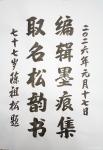 二〇二六年元月十七日
编辑墨痕集
取名松韵书
七十七岁徐祖松题